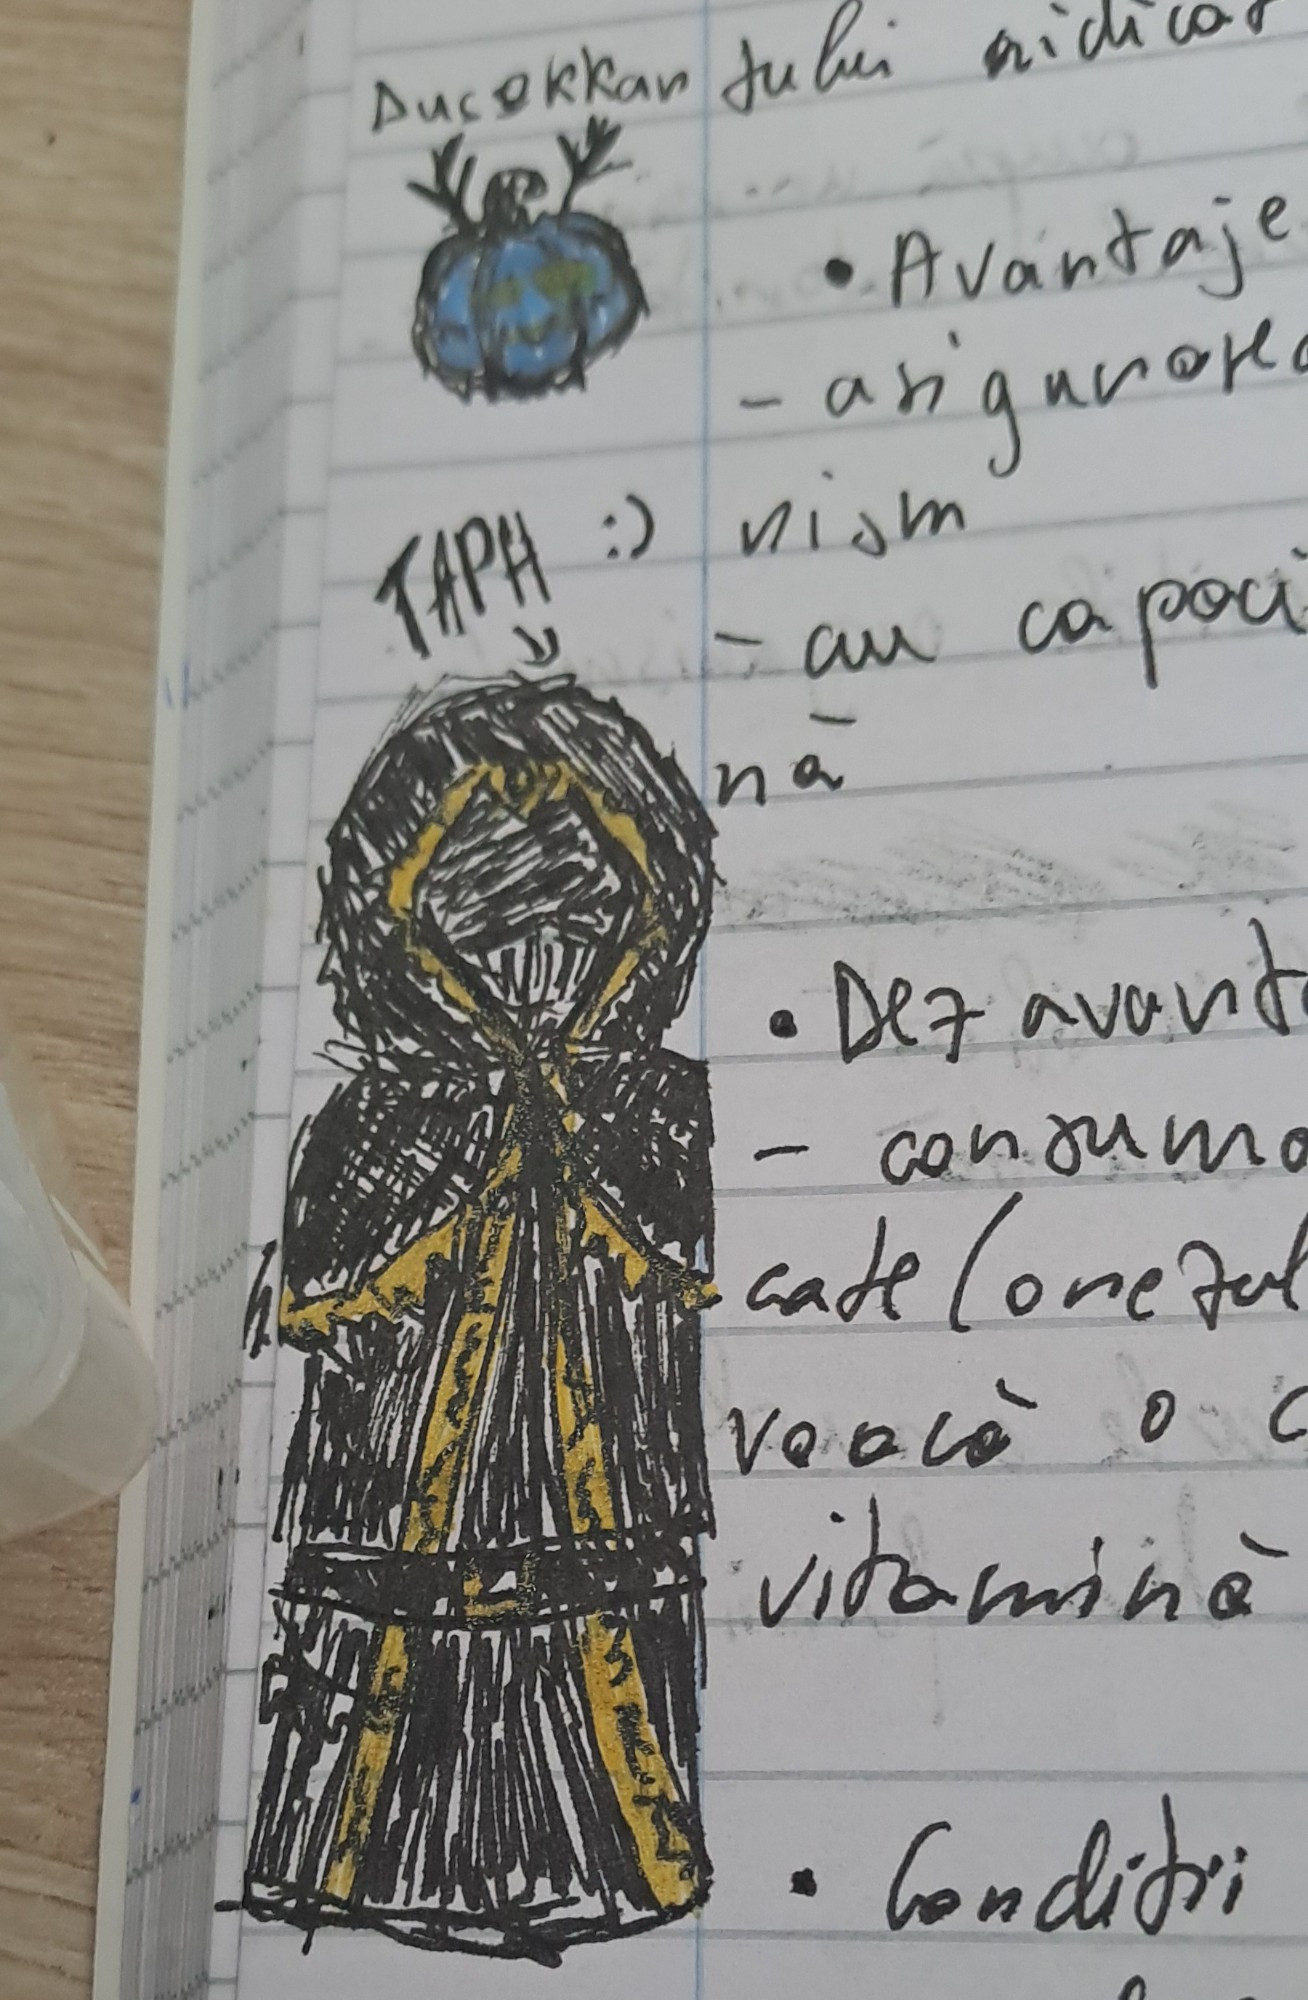 Ducekkan
tului ridicat
• Avantaje
- asigurarea
TAPH :)
nism
- au capaci
nă
• Dezavanta
- consuma
cate (orezul
voacă o c
vitamină
• Condiții